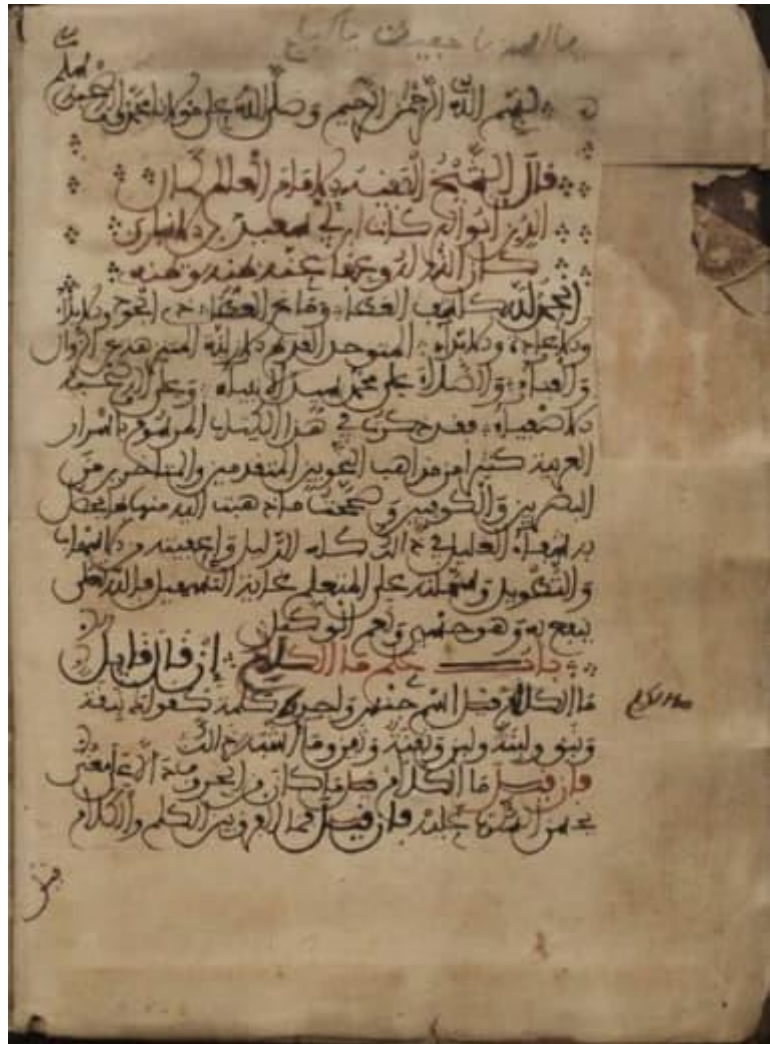 بسم الله الرحمن الرحيم وصلى الله على مولانا محمد وآله وصحبه وسلم
قال الشيخ الفقيه الإمام العالم كمال
الدين أبو البركات بن أبي سعيد الأنباري
كان الله له وعفا عنه بمنه
الحمد لله كاشف الغطاء ومانح العطاء ذي الجود والايداء
والاعادة والابداء المتوحد القديم
والصلاة على محمد سيد الانبياء وعلى آله وصحبه
الاصفياء فقد ذكرت في هذا الكتاب الموسوم باسرار
العربية كثيرا من مذاهب النحويين المتقدمين والمتاخرين من
البصريين والكوفيين وصححت ما ذهبت اليه منها بما يحصل
به شفاء الغليل في ذلك كله الدليل واعفيته من الاسهاب
والتطويل وسهلته على المتعلم غاية التسهيل فالله تعلى
ينفع به وهو حسبي ونعم الوكيل
باب علم ما الكلم إن قال قايل
ما الكلم قيل اسم جنس واحده كلمة كقولك نبقة
ونبق ولبنة ولبن وثفنة وثفن وما اشبه ذلك
فإن قيل ما الكلام قيل ما كان من الحروف دالا على معنى
يحسن السكوت عليه فإن قيل فما الفرق بين الكلم والكلام